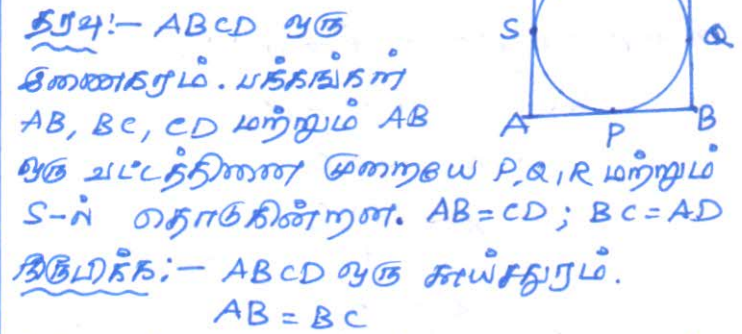 தரவு:- ABCD ஒரு
இணைகரம். பக்கங்கள்
AB, BC, CD மற்றும் AB
ஒரு வட்டத்தினை முறையே P,Q,R மற்றும்
S-ல் தொடுகின்றன. AB=CD; BC=AD
நிருபிக்க:- ABCD ஒரு சாய்சதுரம்.
AB = BC
S
Q
A
P
B